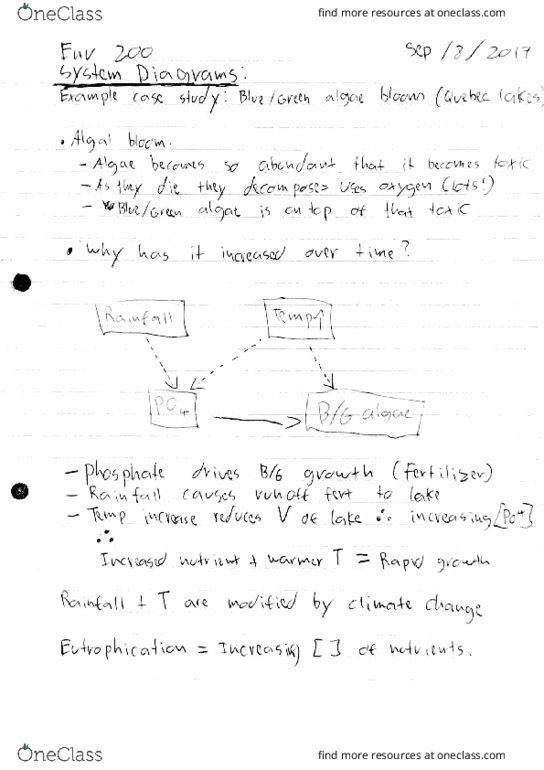 OneClass
find more resources at oneclass.com
Env 200
Sep /8/2017
System Diagrams:
Example case study: Blue/Green algae bloom (Quebec lakes)
• Algal bloom.
- Algae becomes so abundant that it becomes toxic
- As they die they decompose uses oxygen (lots!)
- Blue/Green algae is on top of that toxic
• Why has it increased over time?
Rainfall
Temp↑
PO4
B/G algae
- Phosphate drives B/G growth (fertilizer)
- Rainfall causes runoff fert to lake
- Temp increase reduces V of lake ∴ increasing [PO4]
∴
Increased nutrient + warmer T = Rapid growth
Rainfall + T are modified by climate change
Eutrophication = Increasing [ ] of nutrients.
OneClass
find more resources at oneclass.com